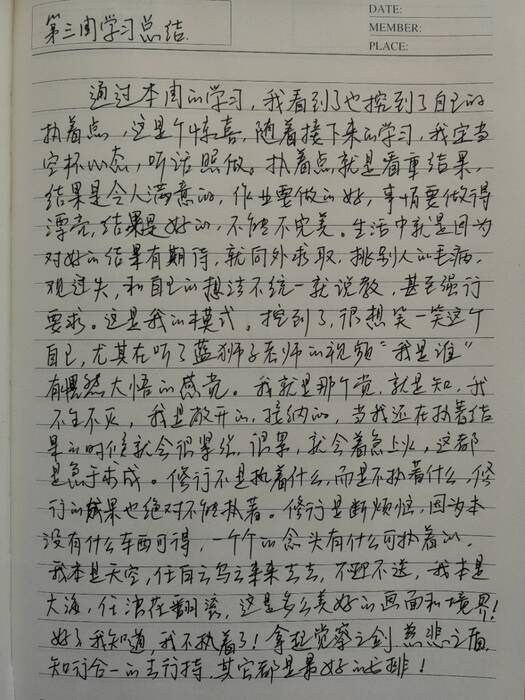 第三周学习总结
DATE:
MEMBER:
PLACE:
通过本周的学习，我看到了也挖到了自己的
执着点，这是个惊喜，随着接下来的学习，我定当
空杯心态，听话照做。执着点就是看重结果，
结果是令人满意的，作业要做的好，事情要做得
漂亮，结果是好的，不能不完美。生活中就是因为
对好的结果有期待，就向外求取，挑别人的毛病，
观过失，和自己的想法不统一就说教，甚至强行
要求。这是我的模式。挖到了，很想笑一笑这个
自己，尤其在听了蓝狮子老师的视频“我是谁”
有恍然大悟的感觉。我就是那个觉，就是知，我
不生不灭，我是敞开的，接纳的，当我还在执着结
果的时候就会很紧张，很累，就会着急上火，这都
是急于求成。修行不是执着什么，而是不执着什么，修
行的成果也绝对不能执着。修行是断烦恼，因为本
没有什么东西可得，一个个的念头有什么可执着的，
我本是天空，任白云乌云来来去去，不迎不送，我本是
大海，任浪花翻滚，这是多么美好的画面和境界！
好了我知道，我不执着了！拿起觉察之剑，慈悲之盾，
知行合一的去行持，其它都是最好的安排！